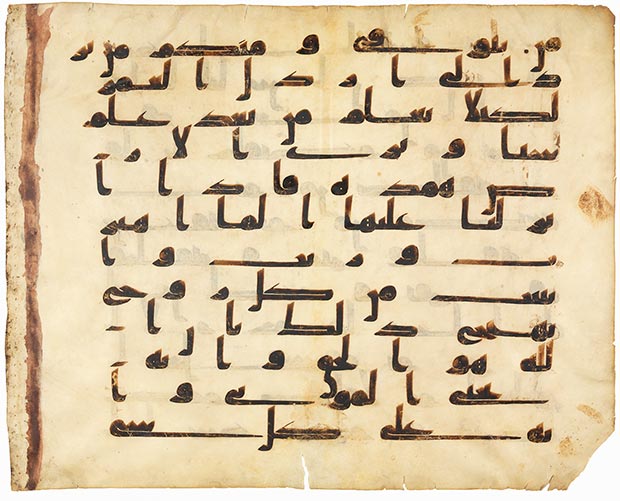 من يتوفى و منكم من ير
د الى ارذل العمر
لكيلا يعلم من بعد علم
شيا و ترى الار
ض همده فاذا ا
نزلنا عليها الما اهتز
ت و ربت و ا
نبتت من كل زوج
بهيج ذلك بان ا
لله هو الحق و انه
يحى الموتى و ا
نه على كل شى